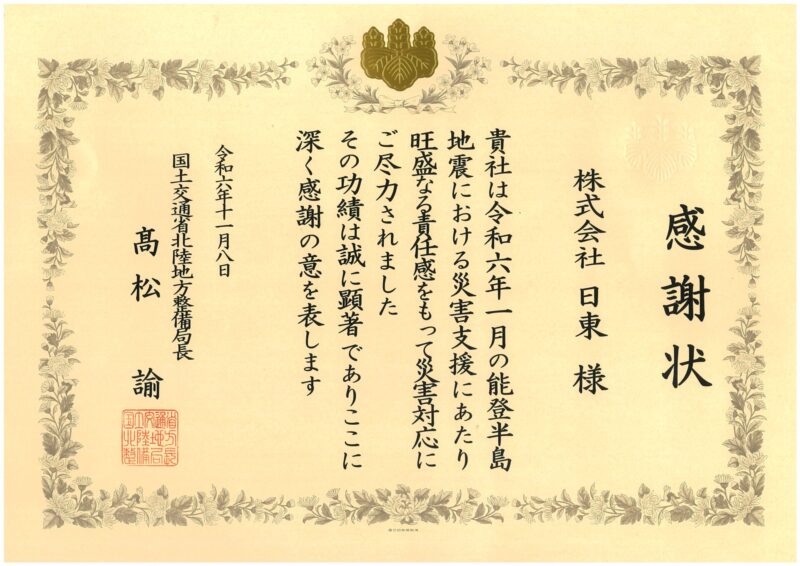 感謝状
株式会社 日東 様
貴社は令和六年一月の能登半島
地震における災害支援にあたり
旺盛なる責任感をもって災害対応に
ご尽力されました
その功績は誠に顕著でありここに
深く感謝の意を表します
令和六年十一月八日
国土交通省北陸地方整備局長
髙松 諭